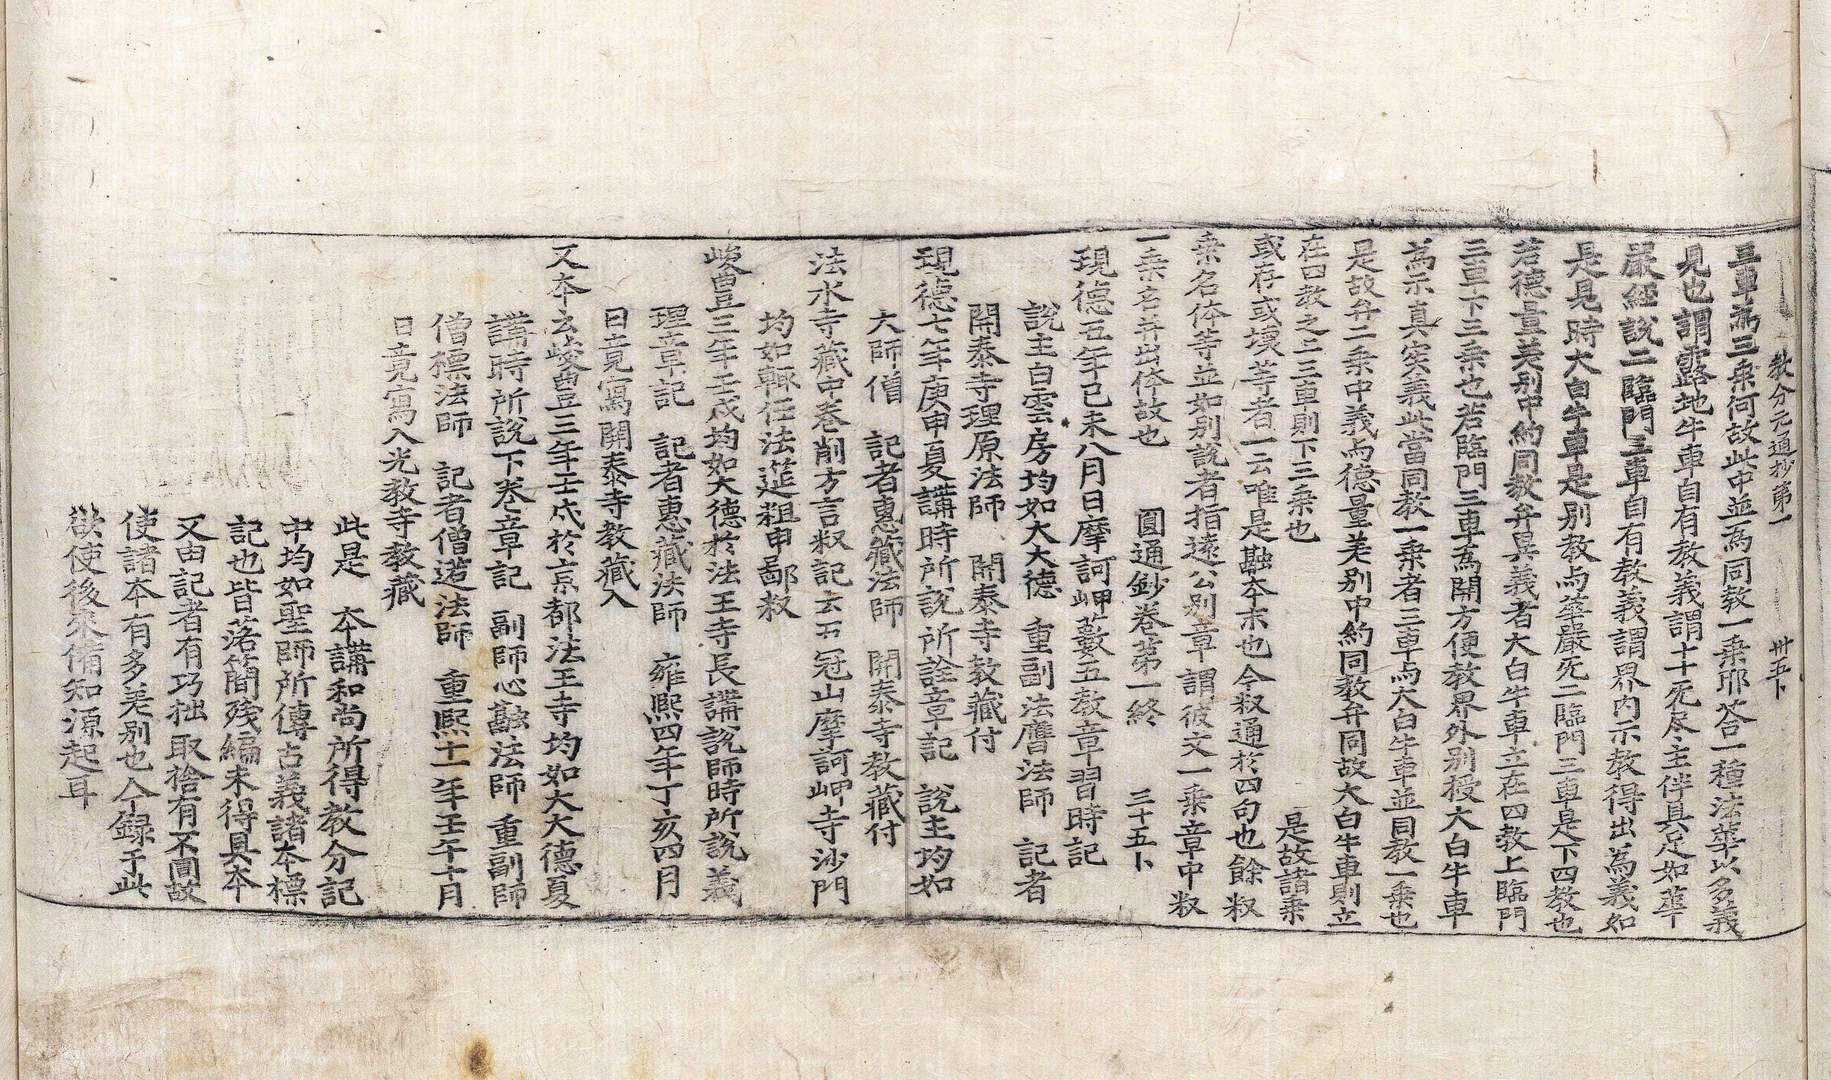 教分元通抄第一 卅五卜
三車為三乗何故此中並為同教一乗耶答一種法華以多義
見也謂露地牛車自有教義謂十无尽主伴具足如華
嚴経説二臨門三車自有教義謂界内示教得出為義如
是見時大白牛車是别教与華嚴无二臨門三車是下四教也
若德量差别中約同教弁異義者大白牛車立在四教上臨門
三車下三乗也若臨門三車為開方便教界外别授大白牛車
為示真実義此當同教一乗者三車与大白牛車並同教一乗也
是故弁二乗中義与德量差别中約同教弁同故大白牛車則立
在四教之上三車則下三乗也 是故諸乗
或存或壊等者一云唯是融本末也今叔通於四句也餘叔
乗名体等並如别説者指遠公别章謂彼文一乗章中叔
一乗名弁出体故也 圓通鈔卷第一終 三十五卜
現德五年己未八月日摩訶岬藪五教章習時記
說主白雲房均如大大德 重副法膺法師 記者
開泰寺理原法師 開泰寺教藏付
現德七年庚申夏講時所説所詮章記 說主均如
大師僧 記者惠藏法師 開泰寺教藏付
法水寺藏中卷削方言叔記云五冠山摩訶岬寺沙門
均如輙任法莚粗申鄙叔
峻豊三年壬戌均如大德於法王寺長講說師時所説義
理章記 記者惠藏法師 雍熙四年丁亥四月
日竟寫開泰寺教藏入
又本云峻豊三年壬戌於京都法王寺均如大大德夏
講時所説下卷章記 副師心融法師 重副師
僧標法師 記者僧逽法師 重熙十一年壬午十月
日竟寫入光教寺教藏
此是 本講和尚所得教分記
中均如聖師所傳古義諸本標
記也皆落簡殘編未得具本
又由記者有巧拙取捨有不圓故
使諸本有多差别也今録于此
欲使後來備知源起耳